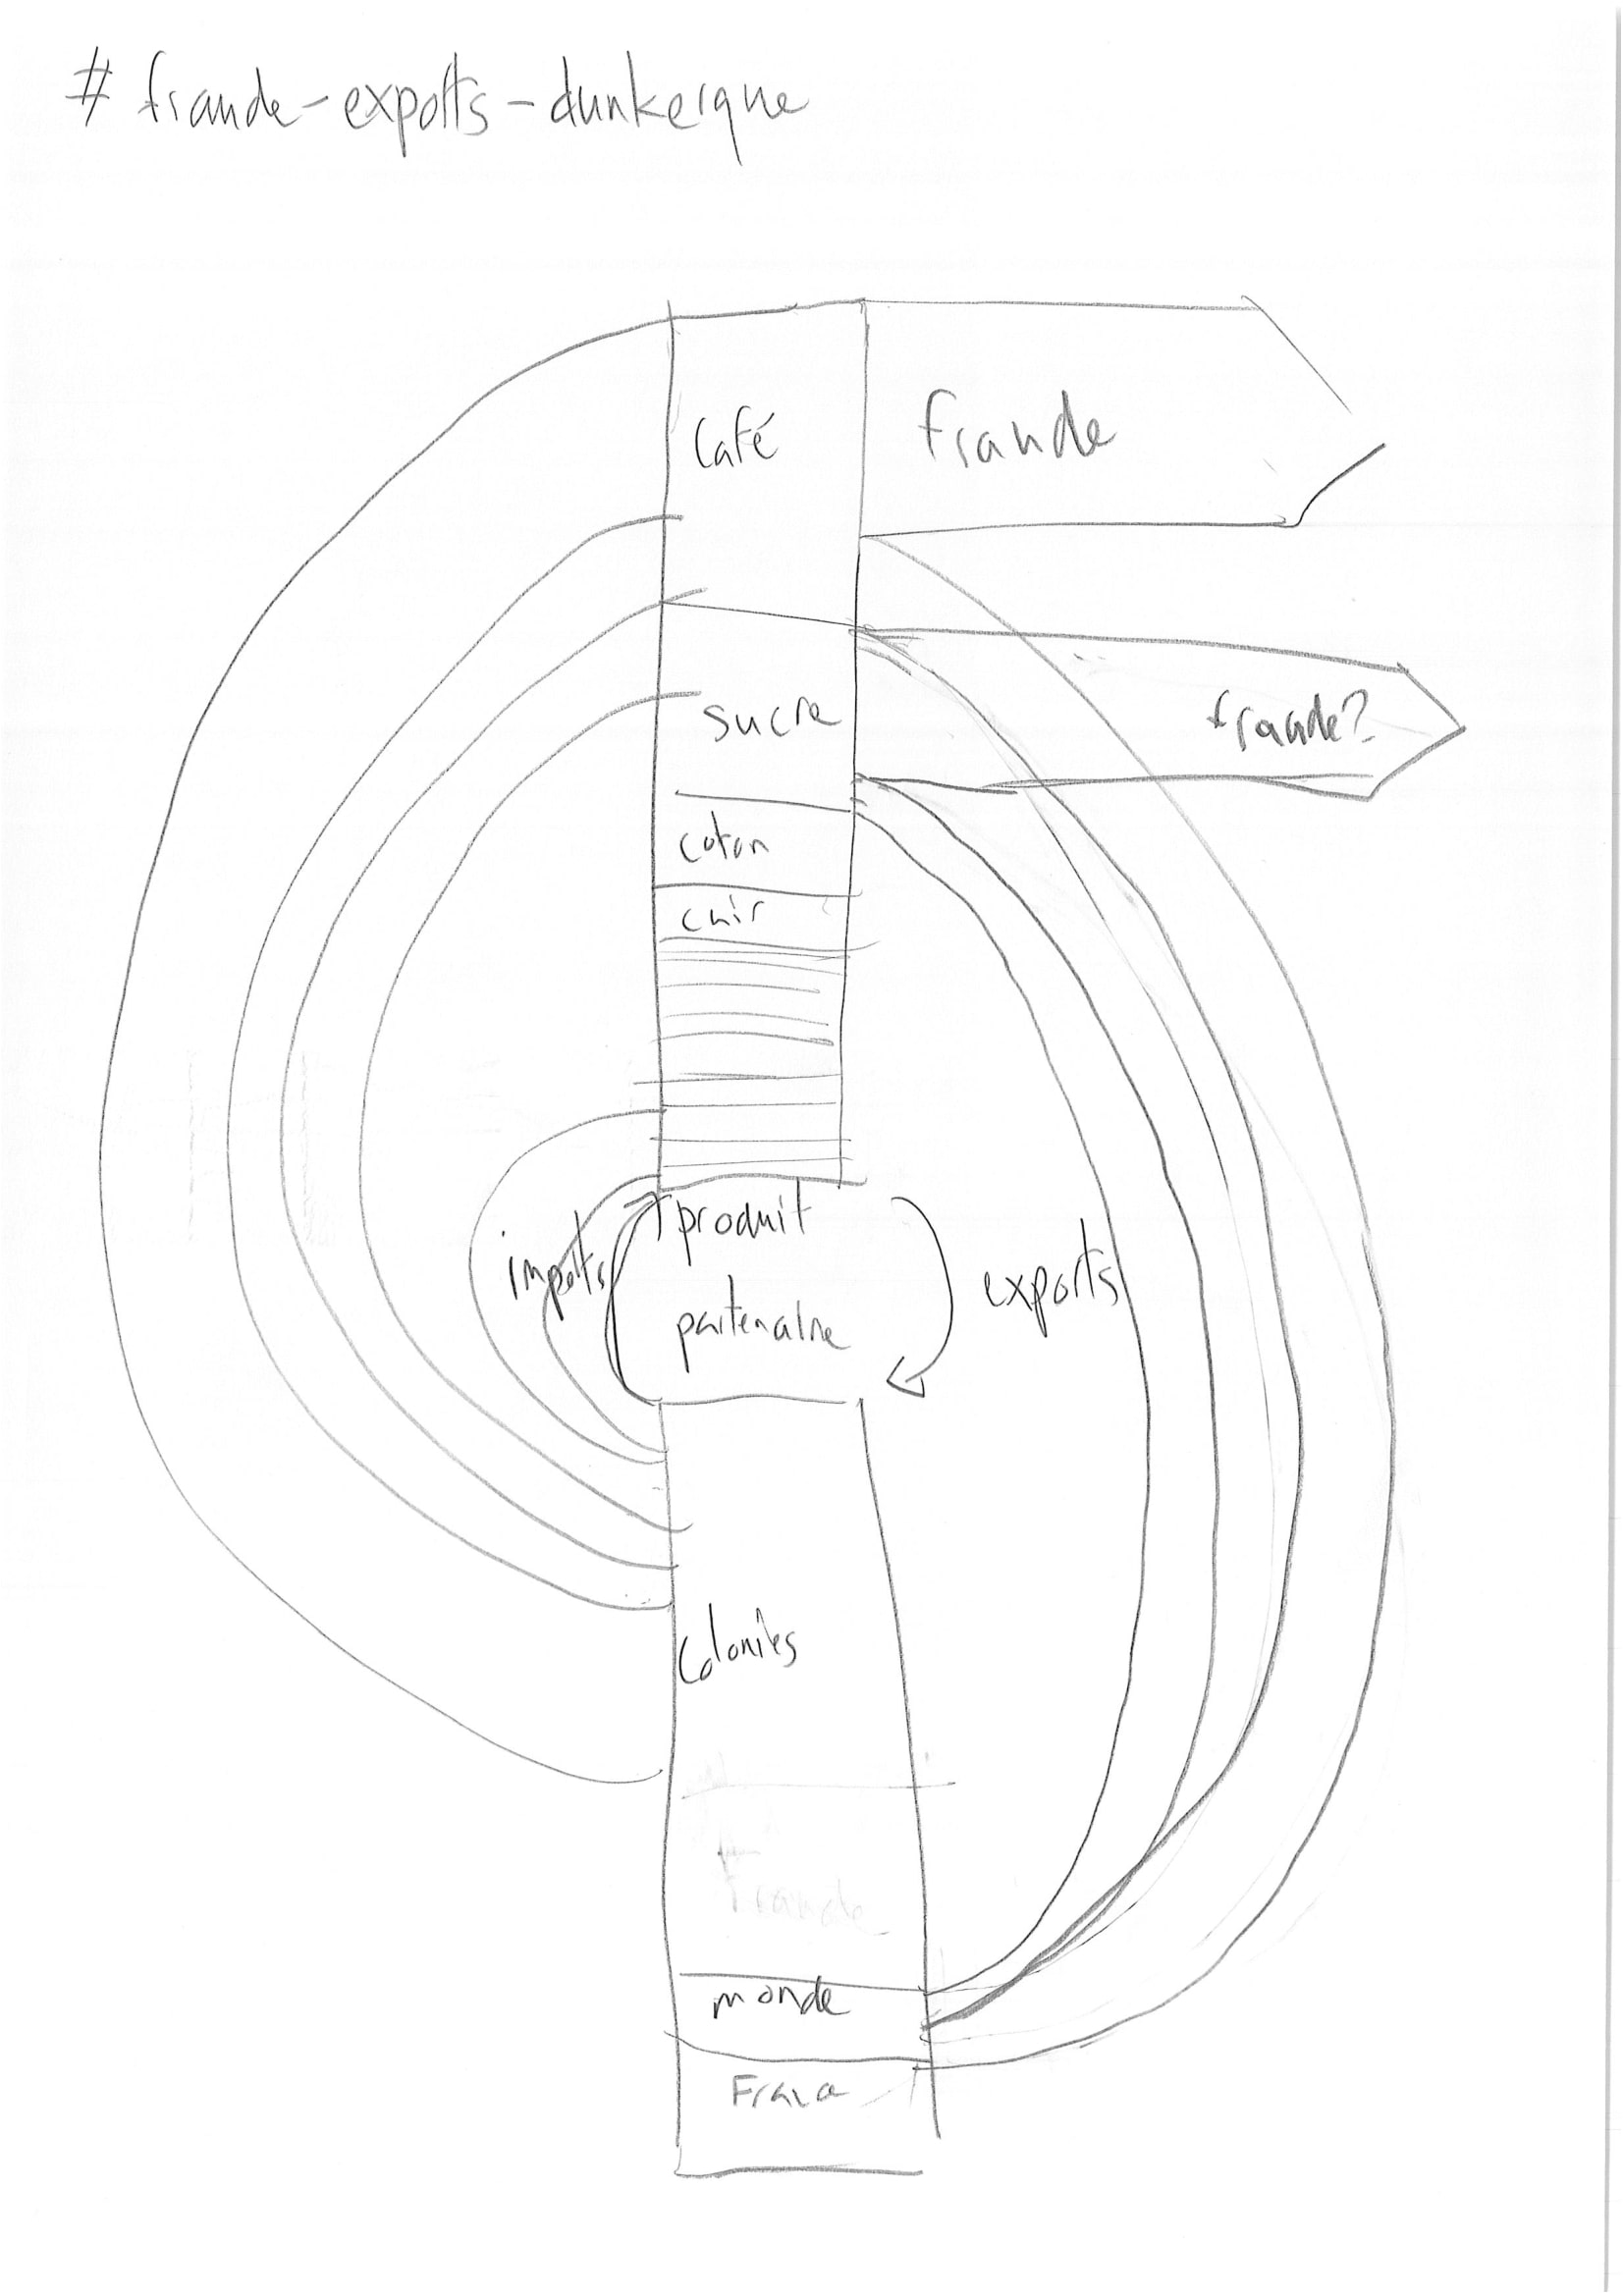 # fraude-exports-dunkerque
Café
fraude
sucre
fraude?
coton
cuir
produit
imports
exports
partenaire
Colonies
fraude
monde